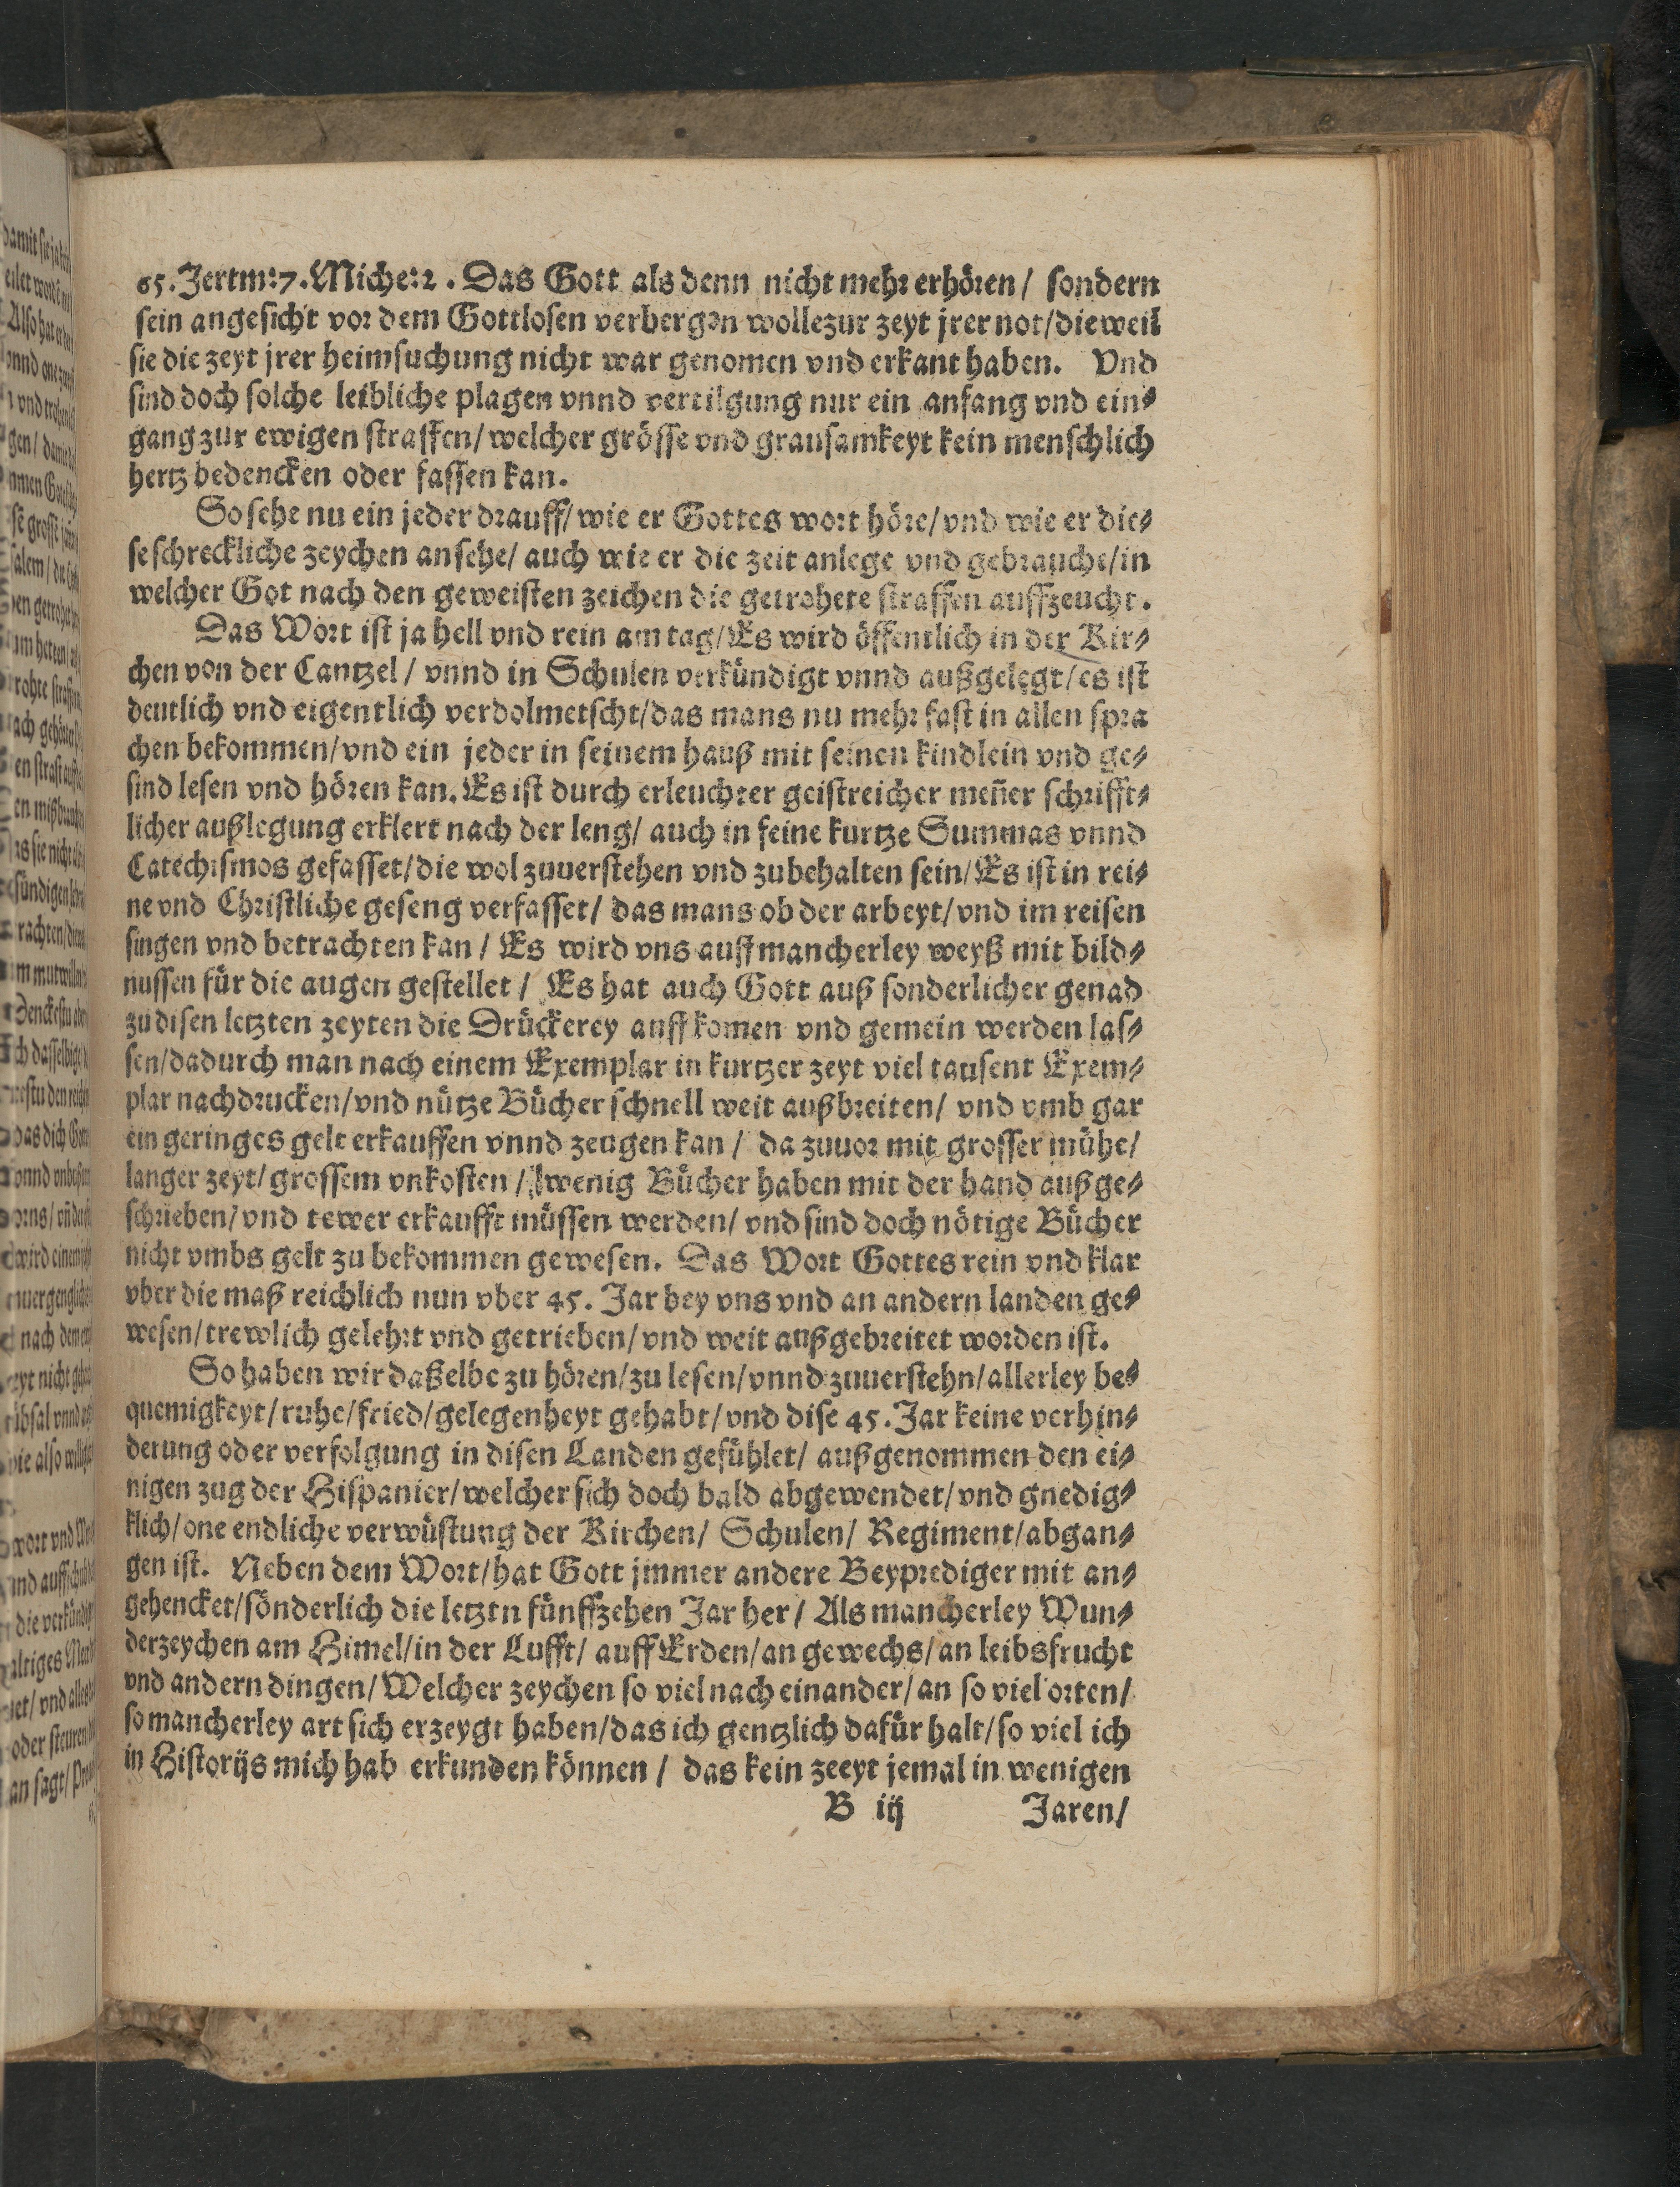 65. Jertm:7. Miche:2. Das Gott als denn nicht mehr erhören / sondern
sein angesicht vor dem Gottlosen verbergen wolle zur zeyt jrer not / die weil
sie die zeyt jrer heimsuchung nicht war genomen vnd erkant haben. Vnd
sind doch solche leibliche plagen vnnd vertilgung nur ein anfang vnd ein⸗
gang zur ewigen straffen / welcher grösse vnd grausamkeyt kein menschlich
hertz bedencken oder fassen kan.
So sehe nu ein jeder drauff / wie er Gottes wort höre / vnd wie er die⸗
se schreckliche zeychen ansehe / auch wie er die zeit anlege vnd gebrauche / in
welcher Got nach den geweisten zeichen die getrohete straffen auffzeucht.
Das Wort ist ja hell vnd rein am tag / Es wird öffentlich in der Kir⸗
chen von der Cantzel / vnnd in Schulen verkündigt vnnd außgelegt / es ist
deutlich vnd eigentlich verdolmetscht / das mans nu mehr fast in allen spra
chen bekommen / vnd ein jeder in seinem hauß mit seinen kindlein vnd ge⸗
sind lesen vnd hören kan. Es ist durch erleuchter geistreicher meñer schrifft⸗
licher außlegung erklert nach der leng / auch in feine kurtze Summas vnnd
Catechismos gefasset / die wol zuuerstehen vnd zubehalten sein / Es ist in rei⸗
ne vnd Christliche geseng verfasset / das mans ob der arbeyt / vnd im reisen
singen vnd betrachten kan / Es wird vns auff mancherley weyß mit bild⸗
nussen für die augen gestellet / Es hat auch Gott auß sonderlicher genad
zu disen letzten zeyten die Drückerey auff komen vnd gemein werden las⸗
sen / dadurch man nach einem Exemplar in kurtzer zeyt viel tausent Exem⸗
plar nachdrucken / vnd nütze Bücher schnell weit außbreiten / vnd vmb gar
ein geringes gelt erkauffen vnnd zeugen kan / da zuuor mit grosser mühe /
langer zeyt / grossem vnkosten / wenig Bücher haben mit der hand außge⸗
schrieben / vnd tewer erkaufft müssen werden / vnd sind doch nötige Bücher
nicht vmbs gelt zu bekommen gewesen. Das Wort Gottes rein vnd klar
vber die maß reichlich nun vber 45. Jar bey vns vnd an andern landen ge⸗
wesen / trewlich gelehrt vnd getrieben / vnd weit außgebreitet worden ist.
So haben wir daßelbe zu hören / zu lesen / vnnd zuuerstehn / allerley be⸗
quemigkeyt / ruhe / fried / gelegenheyt gehabt / vnd dise 45. Jar keine verhin⸗
derung oder verfolgung in disen Landen gefühlet / außgenommen den ei⸗
nigen zug der Hispanier / welcher sich doch bald abgewendet / vnd gnedig⸗
klich / one endliche verwüstung der Kirchen / Schulen / Regiment / abgan⸗
gen ist. Neben dem Wort / hat Gott jmmer andere Beyprediger mit an⸗
gehencket / sönderlich die letztn fünffzehen Jar her / Als mancherley Wun⸗
derzeychen am Himel / in der Lufft / auff Erden / an gewechs / an leibsfrucht
vnd andern dingen / Welcher zeychen so viel nach einander / an so viel orten /
so mancherley art sich erzeygt haben / das ich gentzlich dafür halt / so viel ich
in Historijs mich hab erkunden können / das kein zeeyt jemal in wenigen
B iij Jaren /